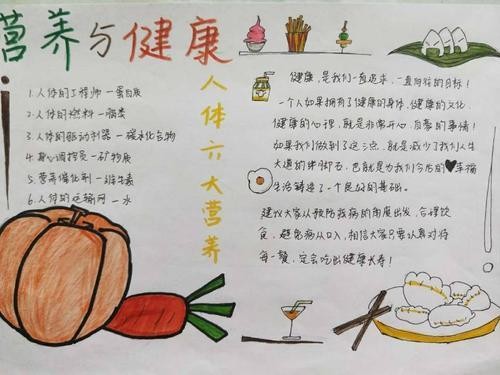 营养与健康
1.人体的工程师—蛋白质
2.人体的燃料—脂类
3.人体的驱动利器—碳水化合物
4.身心调控员—矿物质
5.营养催化剂—维生素
6.人体的运输网—水
人体六大营养
健康,是我们一直追求,一直向往的目标!
一个人如果拥有了健康的身体,健康的文化,
健康的心理,就是非常开心,启蒙的事情!
如果我们做到了这三点,就是减少了我们人生
大道的绊脚石,也就是为我们今后的幸福
生活铸造了一个良好的基础。
建议大家从预防疾病的角度出发,合理饮
食,避免病从口入,相信大家只要认真对待
每一餐,定会吃出健康长寿!